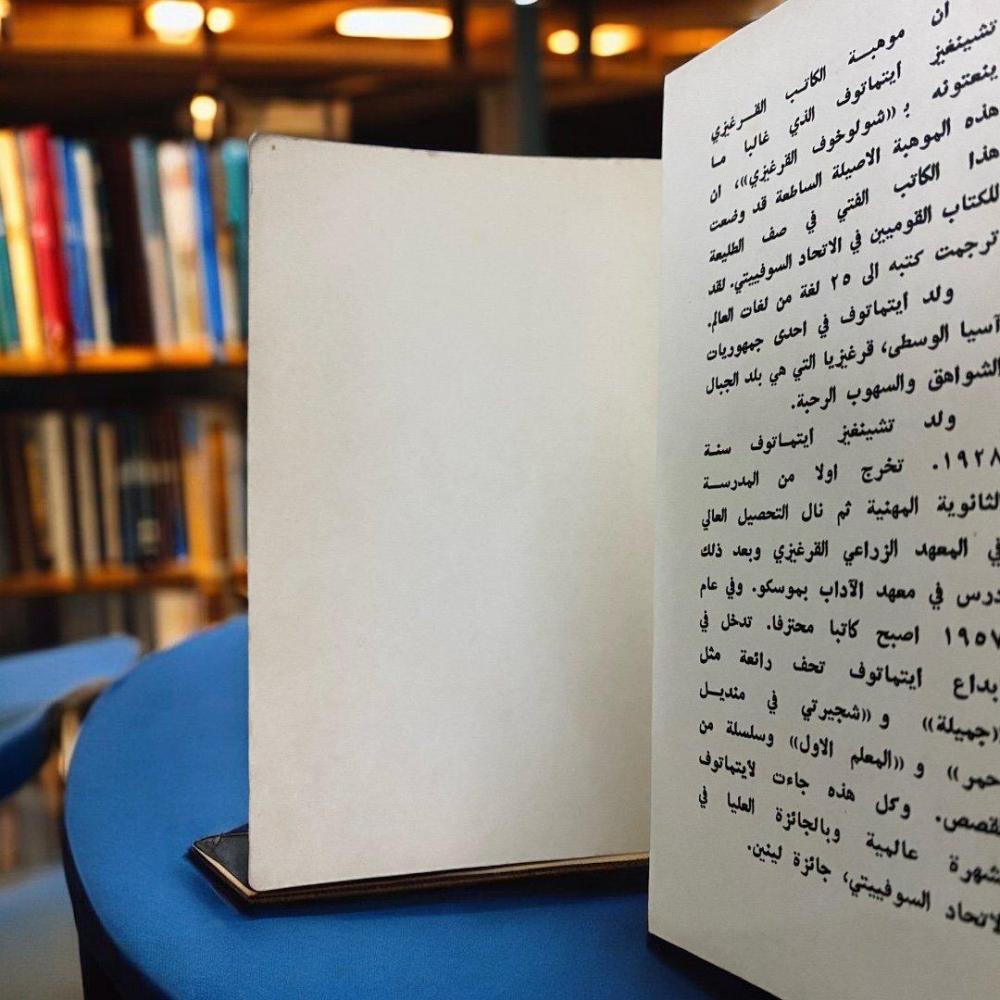 ان موهبة الكاتب القرغيزي
تشينغيز ايتماتوف الذي غالبا ما
ينعتونه بـ «شولوخوف القرغيزي»، ان
هذه الموهبة الاصيلة الساطعة قد وضعت
هذا الكاتب الفتي في صف الطليعة
للكتاب القوميين في الاتحاد السوفييتي. لقد
ترجمت كتبه الى ٢٥ لغة من لغات العالم.
ولد ايتماتوف في احدى جمهوريات
آسيا الوسطى، قرغيزيا التي هي بلد الجبال
الشواهق والسهوب الرحبة.
ولد تشينغيز ايتماتوف سنة
١٩٢٨. تخرج اولا من المدرسة
الثانوية المهنية ثم نال التحصيل العالي
في المعهد الزراعي القرغيزي وبعد ذلك
درس في معهد الآداب بموسكو. وفي عام
١٩٥٧ اصبح كاتبا محترفا. تدخل في
ابداع ايتماتوف تحف رائعة مثل
«جميلة» و «شجيرتي في منديل
احمر» و «المعلم الاول» وسلسلة من
القصص. وكل هذه جاءت لايتماتوف
بشهرة عالمية وبالجائزة العليا في
الاتحاد السوفييتي، جائزة لينين.